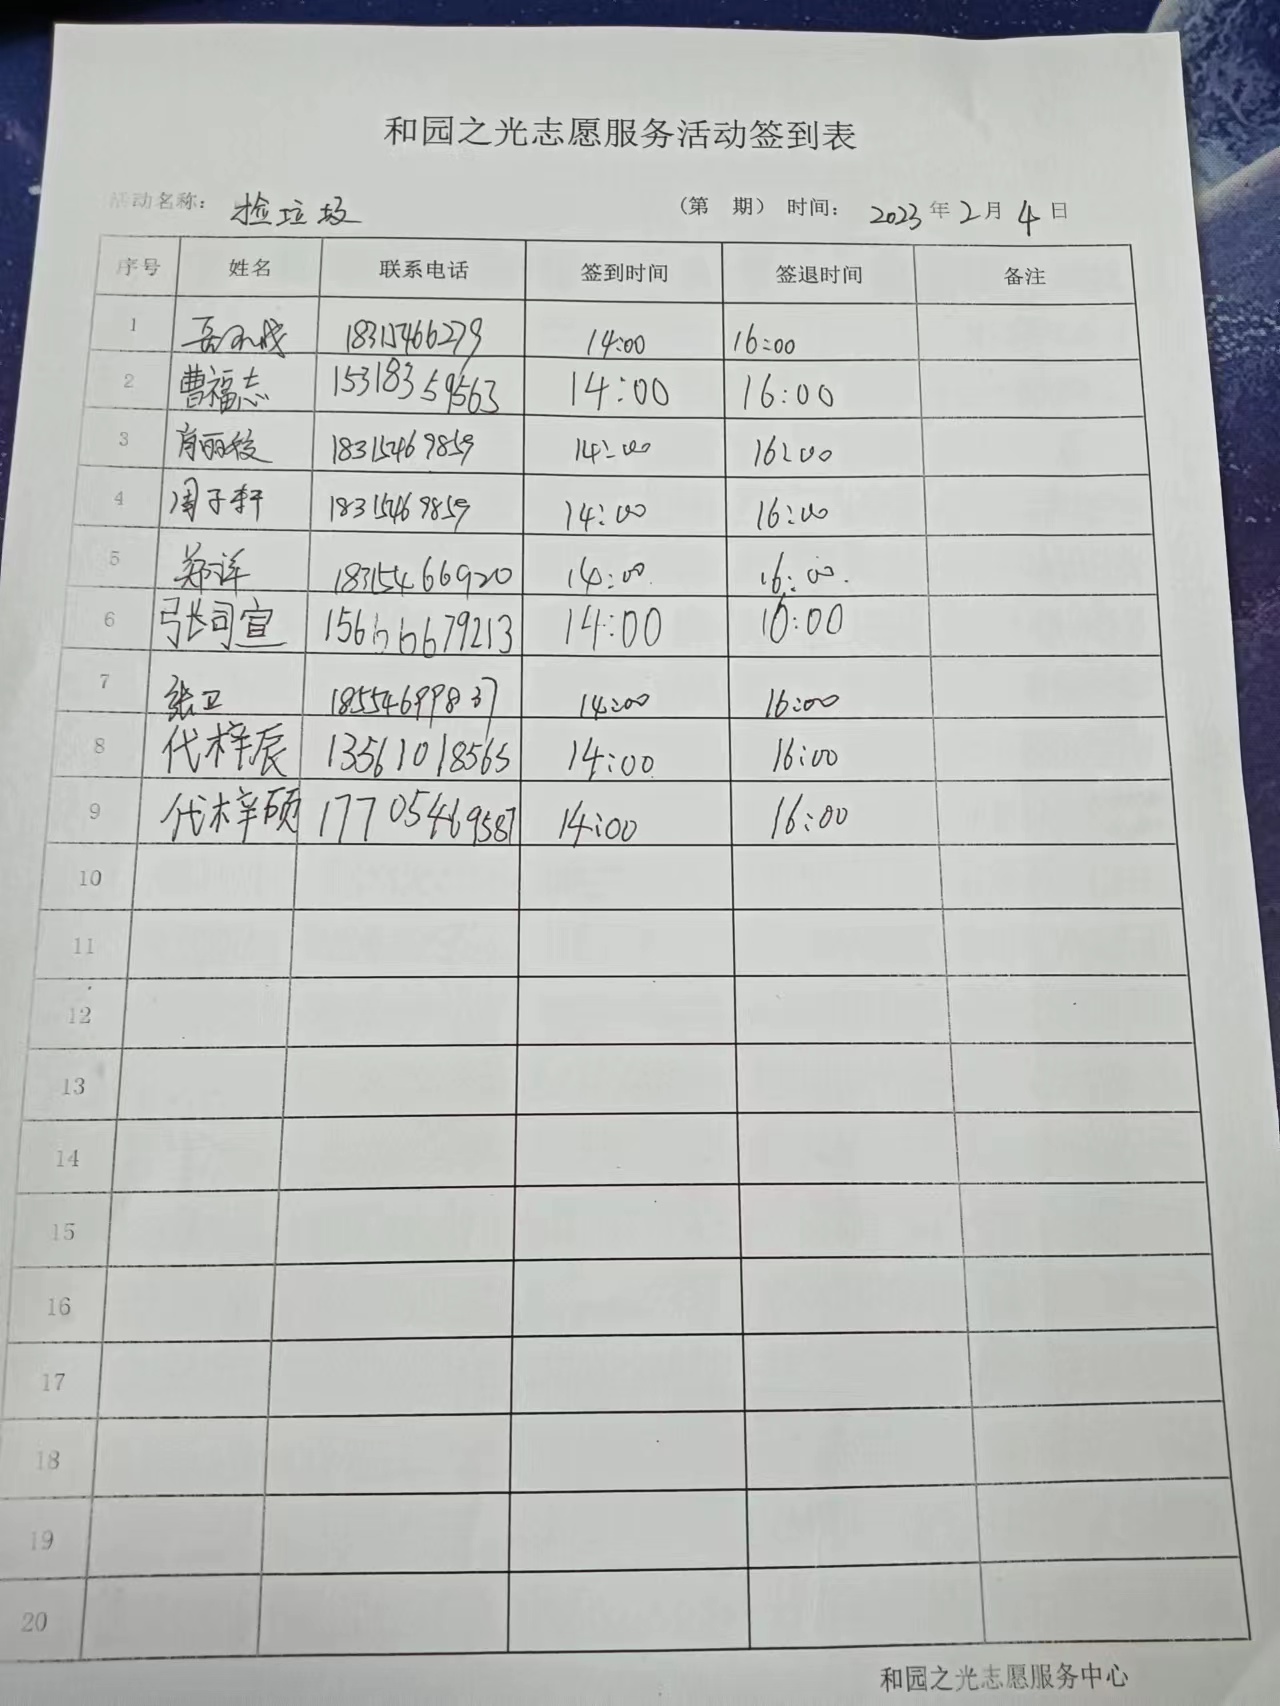 和园之光志愿服务活动签到表
活动名称： 捡垃圾 （第 期） 时间： 2023 年 2 月 4 日
序号 姓名 联系电话 签到时间 签退时间 备注
1 18315466279 14:00 16:00
2 曹福志 15318359563 14:00 16:00
3 肖丽 18315469859 14:00 16:00
4 周子轩 18315469859 14:00 16:00
5 郑 18315466920 14:00. 16:00.
6 张司宣 15666679213 14:00 16:00
7 张卫 18554699837 14:00 16:00
8 代梓辰 13561018565 14:00 16:00
9 代梓硕 17705469587 14:00 16:00
10
11
12
13
14
15
16
17
18
19
20
和园之光志愿服务中心